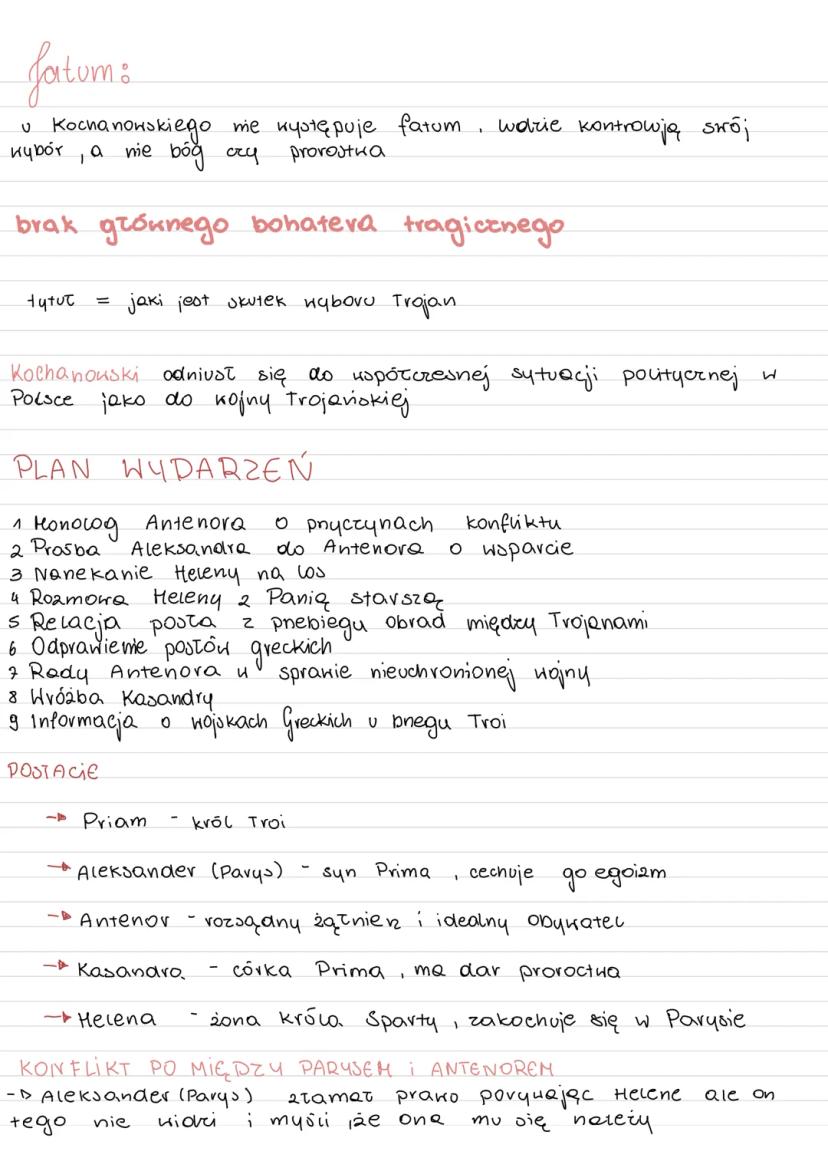 fatum:
u Kochanowskiego nie występuje fatum, ludzie kontrolują swój
wybór, a nie bóg czy proroctwa
brak głównego bohatera tragicznego
tytuł = jaki jest skutek wyboru Trojan
Kochanowski odniusł się do współczesnej sytuacji politycznej w
Polsce jako do wojny Trojańskiej
PLAN WYDARZEŃ
1 Monolog Antenora o przyczynach konfliktu
2 Prośba Aleksandra do Antenora o wsparcie
3 Narzekanie Heleny na los
4 Rozmowa Heleny z Panią starszą
5 Relacja posła z przebiegu obrad między Trojanami
6 Odprawienie posłów greckich
7 Rady Antenora w sprawie nieuchronionej wojny
8 Wróżba Kasandry
9 Informacja o wojskach Greckich u brzegu Troi
POSTACIE
→ Priam - król Troi
→ Aleksander (Parys) - syn Prima, cechuje go egoizm
→ Antenor - rozsądny żąłnierz i idealny obywatel
→ Kasandra - córka Prima, ma dar proroctwa
→ Helena - żona króla Sparty, zakochuje się w Parysie
KONFLIKT PO MIĘDZY PARYSEM i ANTENOREM
→ Aleksander (Parys) złamał prawo porywając Helene ale on
tego nie widzi i myśli, że ona mu się należy